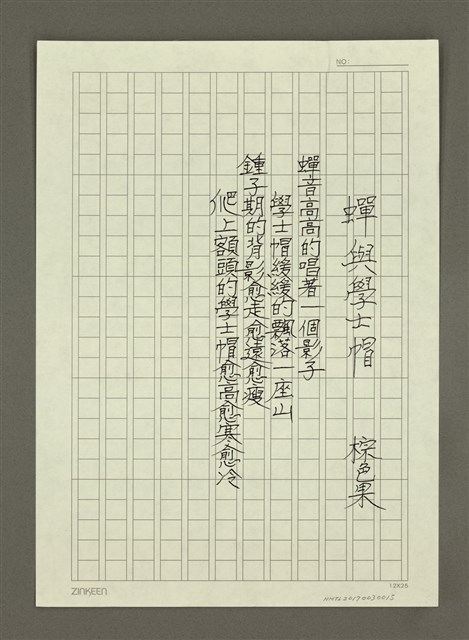 NO:
蟬與學士帽
棕色果
蟬音高高的唱著一個影子
學士帽緩緩的飄落一座山
鍾子期的背影愈走愈遠愈瘦
爬上額頭的學士帽愈高愈寒愈冷
ZINKEEN
12X25
NMTL20170030015